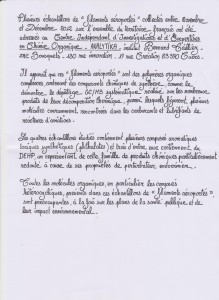 Plusieurs échantillons de "filaments aéroportés" collectés entre Novembre
et Décembre 2014 sur l'ensemble du territoire français ont été
adressés au Centre Indépendant d'Investigations et d'Expertises
en Chimie Organique, ANALYTIKA,
Il apparaît que ces "filaments aéroportés" sont des polymères organiques
complexes contenant des composés chimiques de synthèse. Comme le
démontre le dépistage GC/MS systématique réalisé sur les nombreux
produits de leur décomposition thermique, parmi lesquels figurent plusieurs
molécules couramment rencontrées dans les carburants et lubrifiants de
réacteurs d'aviation.
Les quatre échantillons étudiés contiennent plusieurs composés aromatiques
toxiques synthétiques (phthalates) et trois d'entre eux contiennent du
DEHP, un représentant de cette famille de produits chimiques particulièrement
redouté à cause de ses propriétés de perturbateur endocrinien.
"Toutes les molécules organiques, en particulier les composés
hétérocycliques, présents dans ces échantillons de "filaments aéroportés",
sont préoccupantes, à la fois sur les plans de la santé publique et de
leur impact environnemental."